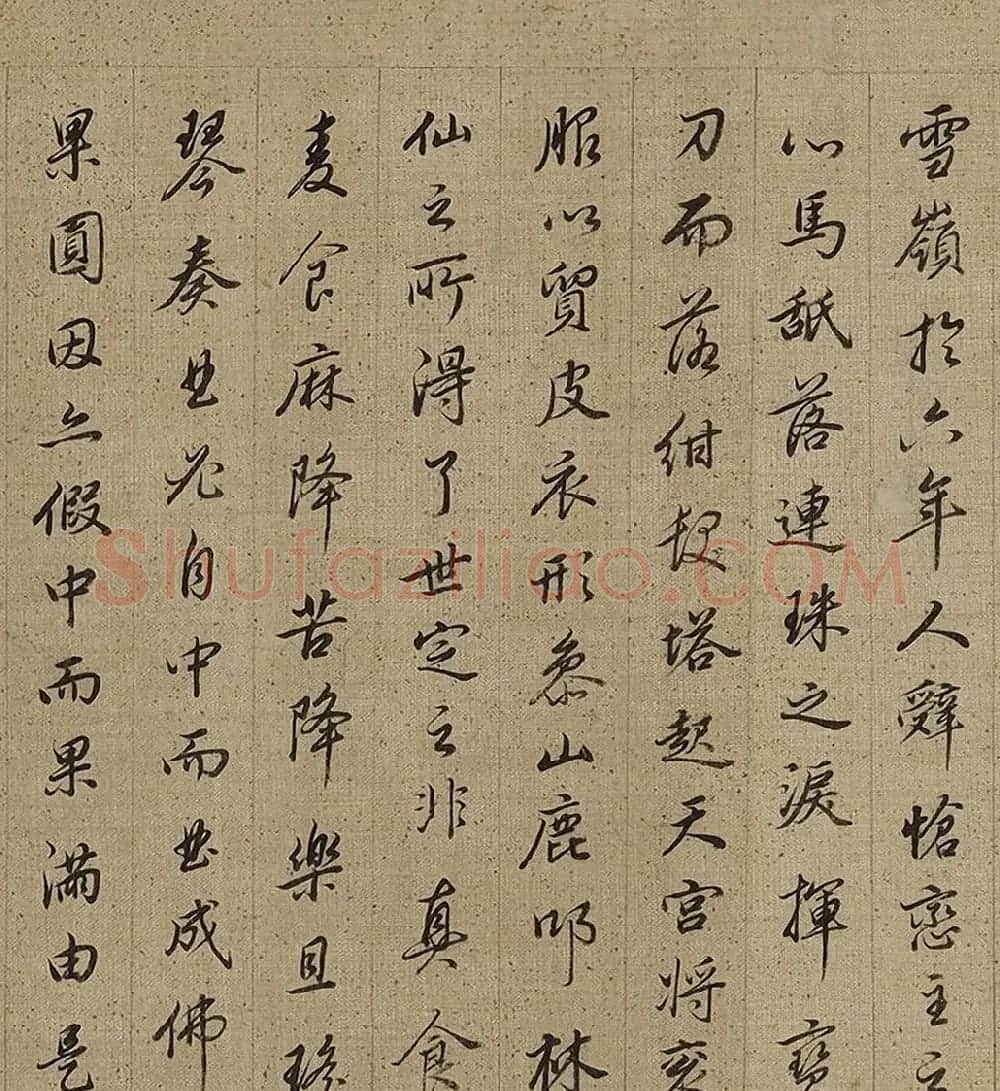 雪嶺於六年人辭愴戀主之
心馬舐落連珠之淚揮寶
刀而落紺髮塔起天宮將袞
服以貿皮衣形參山鹿叩林
仙之所得了世定之非真食
麦食麻降苦降樂且瑤
琴奏曲必自中而曲成佛
果圓因亦假中而果滿由是
Shufaziliao.COM